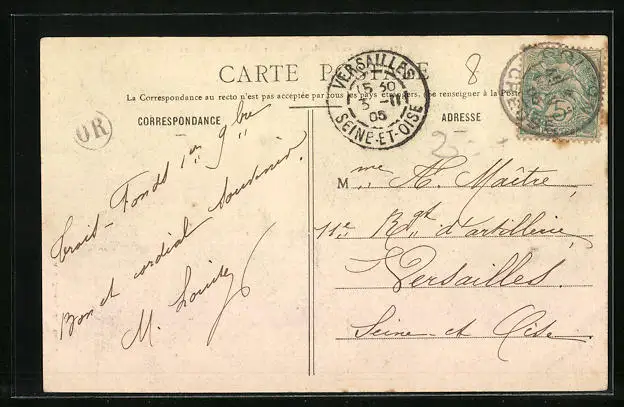 8
CARTE POSTALE
La Correspondance au recto n'est pas acceptée par tous les pays étrangers. (Se renseigner à la Poste
CORRESPONDANCE
ADRESSE
VERSAILLES
15 30
3 - III
05
SEINE-ET-OISE
5
OR
Trois-Fonds 1er 9bre
Bon et cordial souvenir.
M. Louise
Mme A. Maître
11e Rgt d'artillerie
Versailles.
Seine-et Oise.